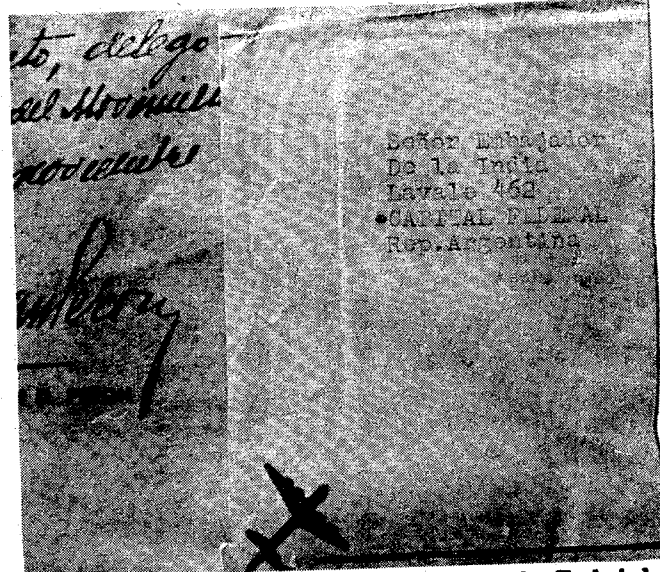 to, delego
del Movimien
noviembre
Perón
Señor Embajador
De la India
Lavalle 462
CAPITAL FEDERAL
Rep. Argentina